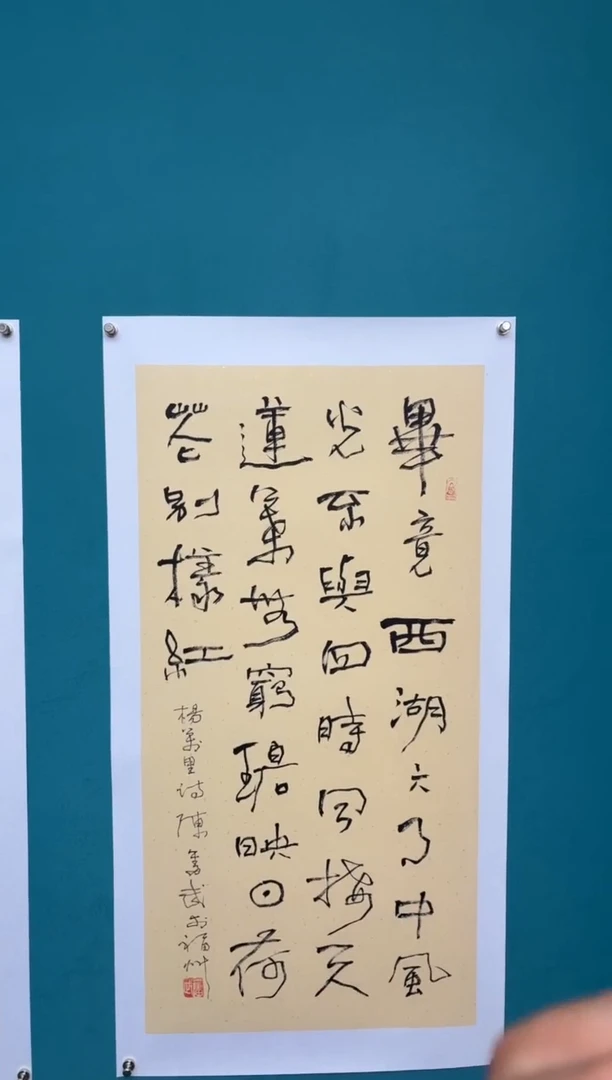 畢竟西湖六月中風
光不與四時同接天
蓮葉無窮碧映日荷
花別樣紅
楊萬里詩陳奮武於福州